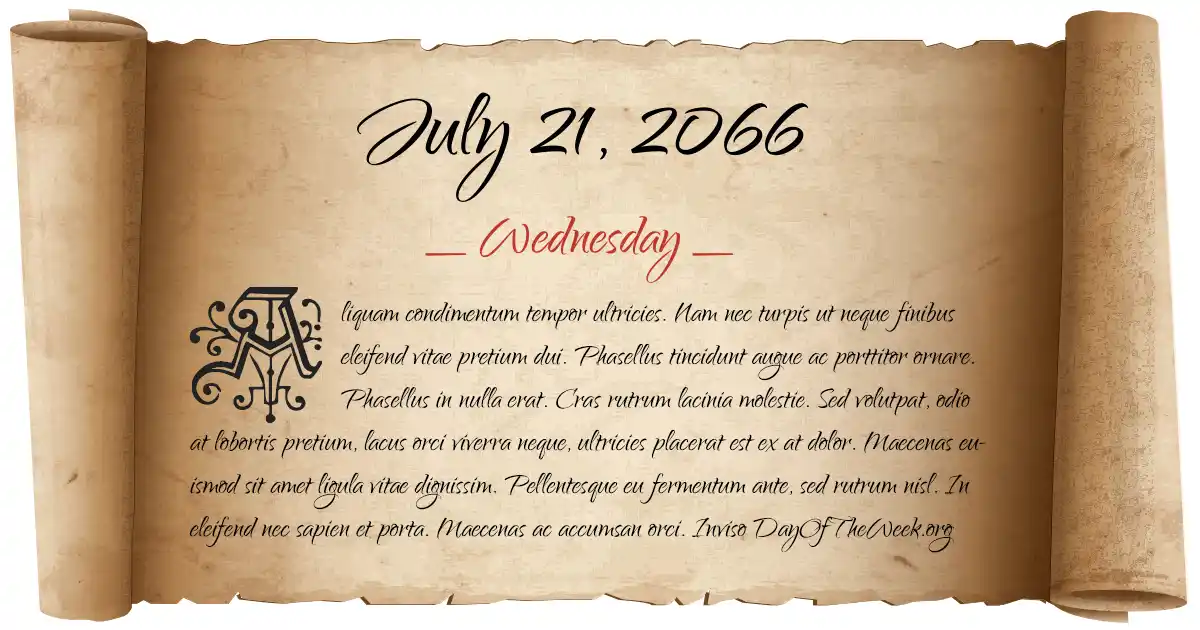 July 21, 2066
Wednesday
Aliquam condimentum tempor ultricies. Nam nec turpis ut neque finibus
eleifend vitae pretium dui. Phasellus tincidunt augue ac porttitor ornare.
Phasellus in nulla erat. Cras rutrum lacinia molestie. Sed volutpat, odio
at lobortis pretium, lacus orci viverra neque, ultricies placerat est ex at dolor. Maecenas eu-
ismod sit amet ligula vitae dignissim. Pellentesque eu fermentum ante, sed rutrum nisl. In
eleifend nec sapien et porta. Maecenas ac accumsan orci. Inviso DayOfTheWeek.org